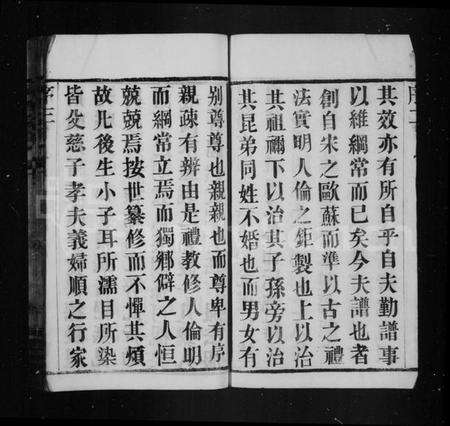 其效亦有所自乎自夫勤譜事
以維綱常而已矣今夫譜也者
創自宋之歐蘇而準以古之禮
法實明人倫之鉅製也上以治
其祖禰下以治其子孫旁以治
其昆弟同姓不婚也而男女有
別尊尊也親親也而尊卑有序
親疎有辨由是禮教修人倫明
而綱常立焉而獨鄉僻之人恒
兢兢焉按世纂修而不憚其煩
故凡後生小子耳所濡目所染
皆父慈子孝夫義婦順之行家
序三